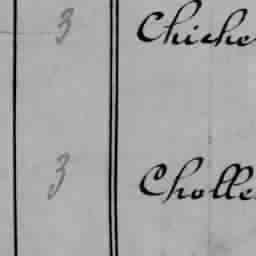 3 Chiche
3 Cholle